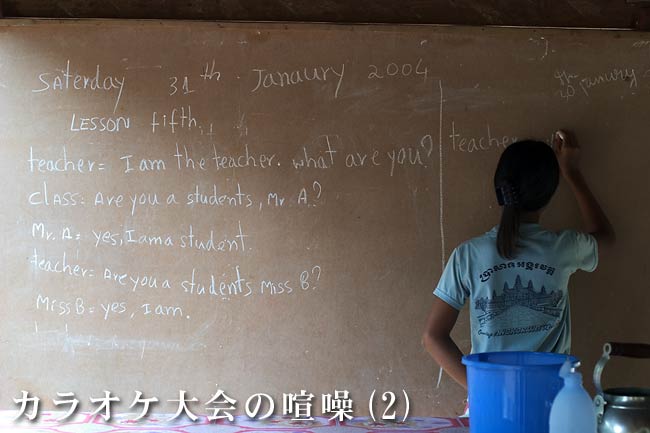 SATERDAY 31th JANAURY 2004
LESSON fifth.
teacher= I am the teacher. what are you?
CLASS: Are you a students, Mr. A?
Mr. A= yes, I am a student.
teacher= Are you a students Miss B?
Miss B= yes, I am.
januury
teacher
ប្រាសាទអង្គរវត្ត
カラオケ大会の喧噪(2)